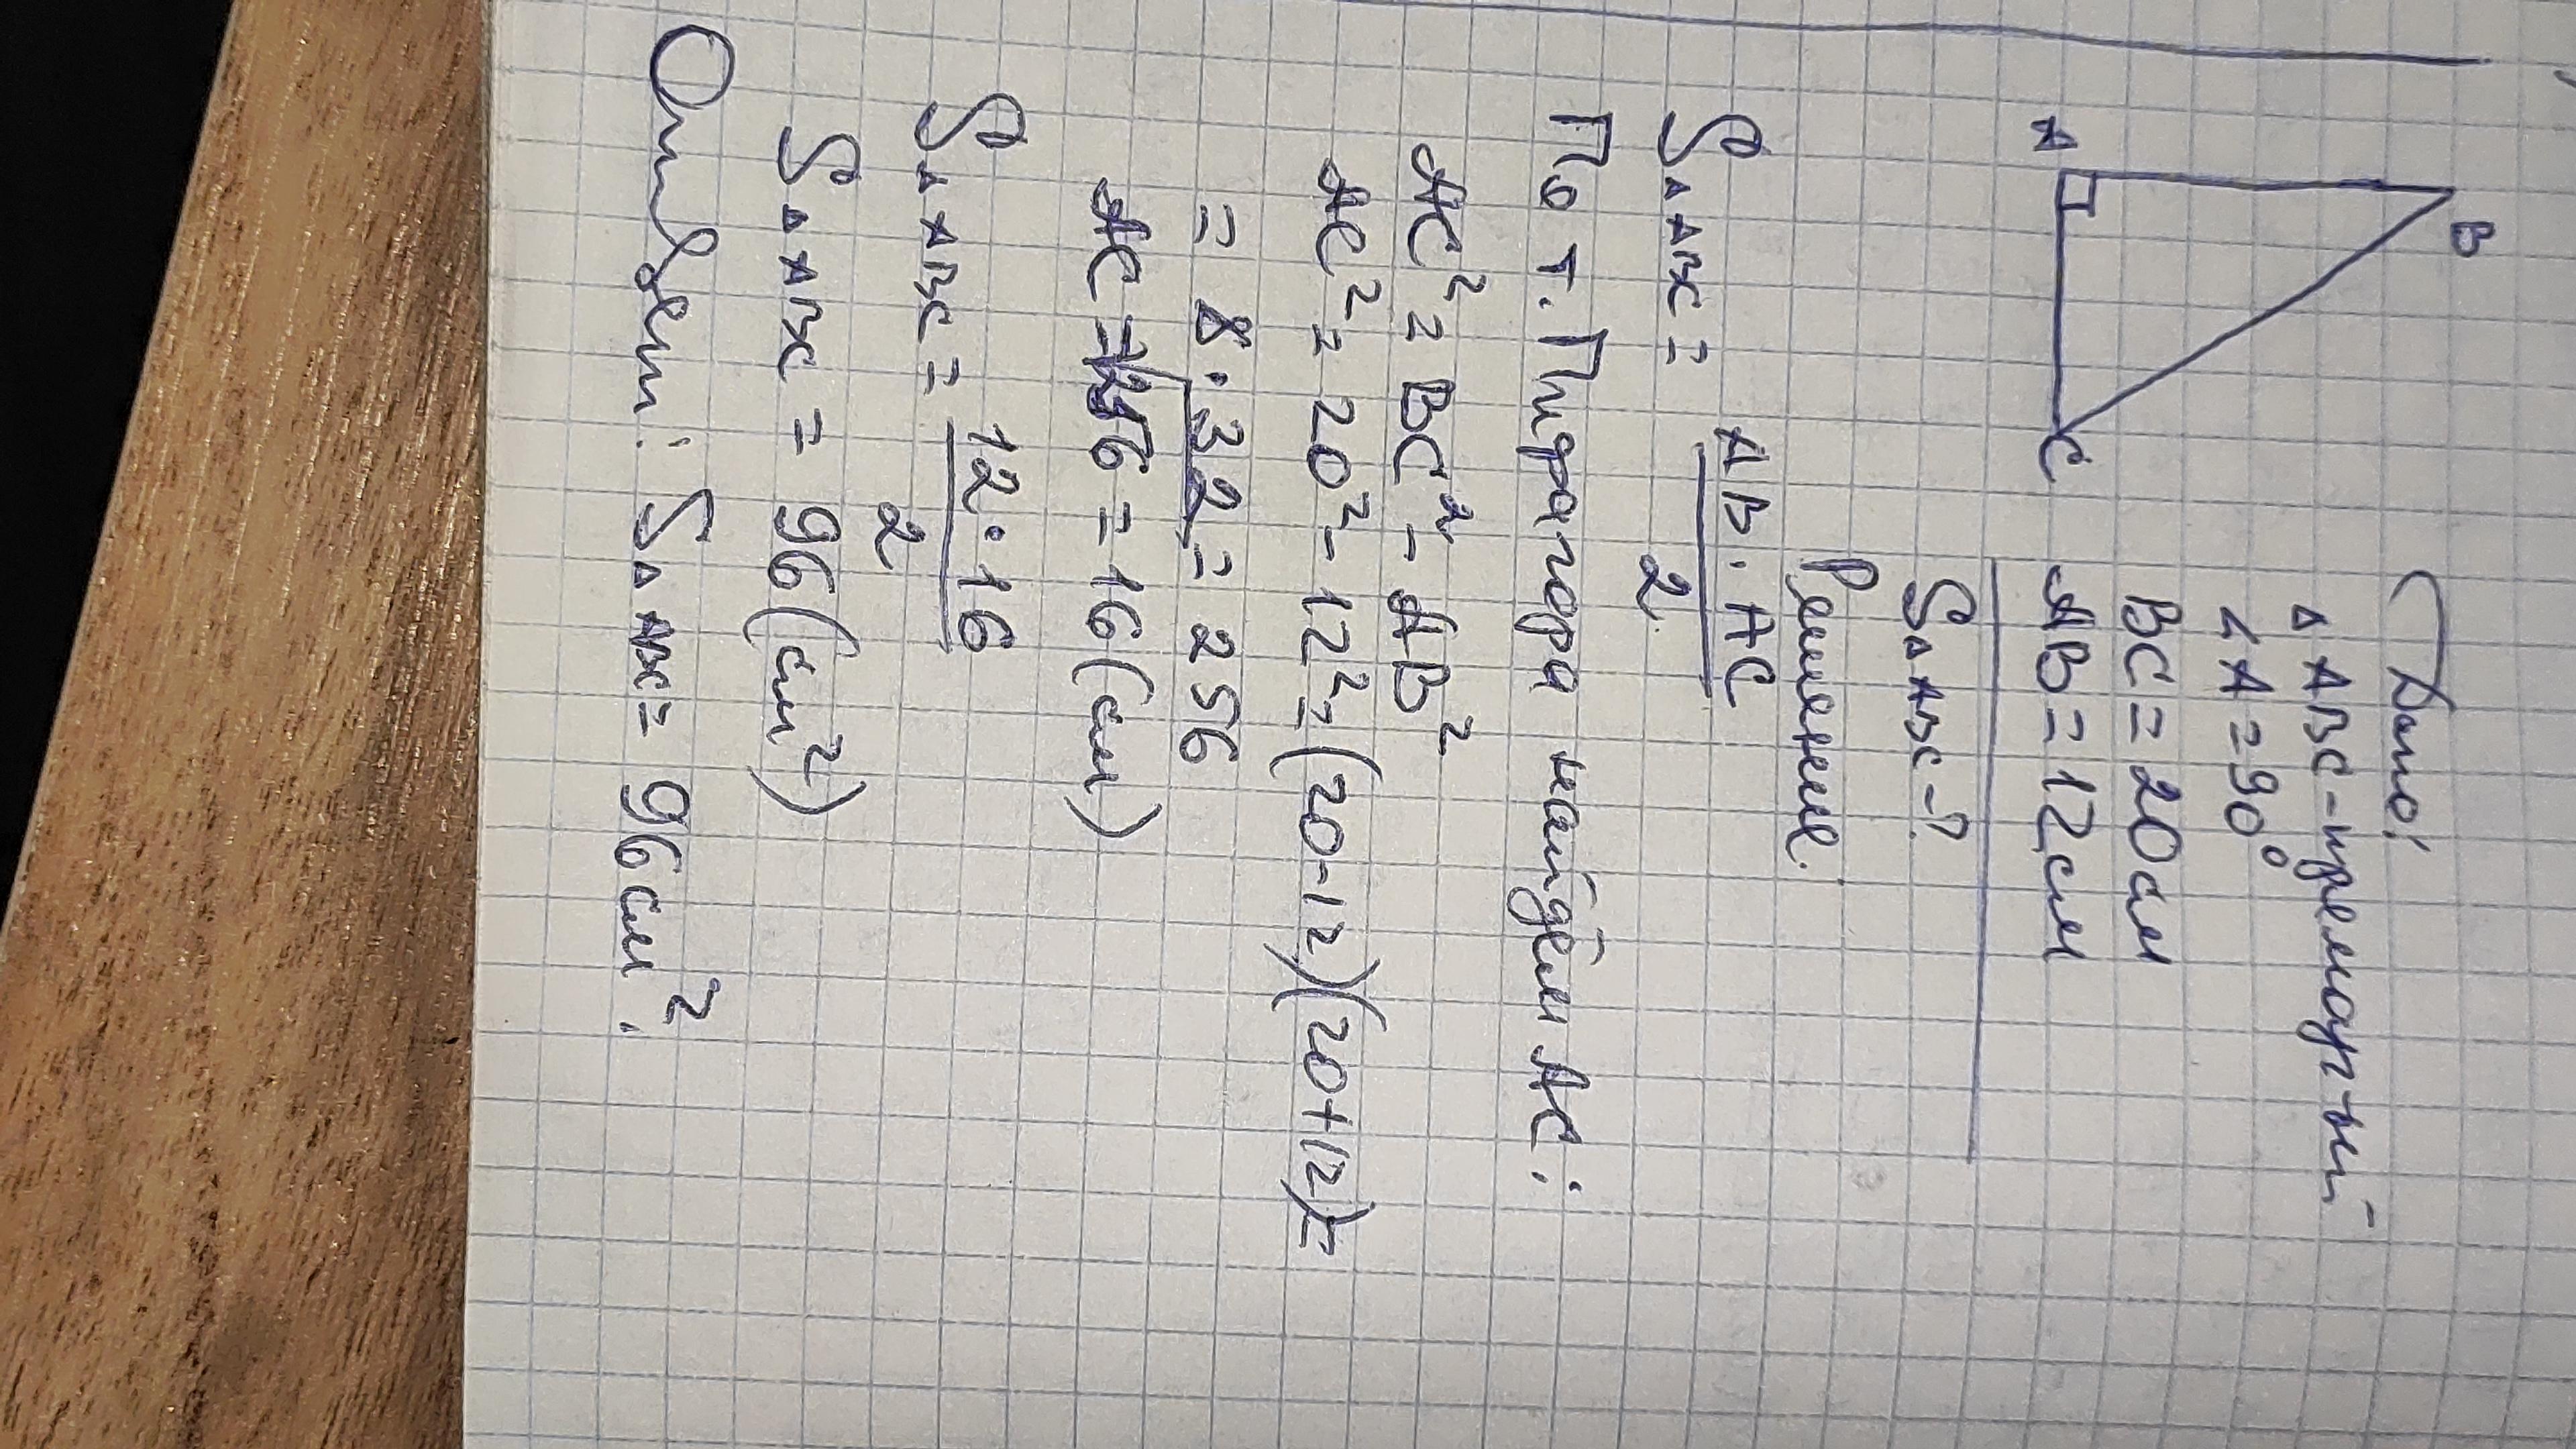 B
A
C
Дано:
△ABC-прямоуг-ный
∠A=90°
BC=20см
AB=12см
S△ABC-?
Решение.
S△ABC = AB·AC / 2
По т. Пифагора найдём AC:
AC² = BC² - AB²
AC² = 20² - 12² = (20-12)(20+12)=
= 8·32 = 256
AC = √256 = 16(см)
S△ABC = 12·16 / 2
S△ABC = 96(см²)
Ответ: S△ABC = 96см².